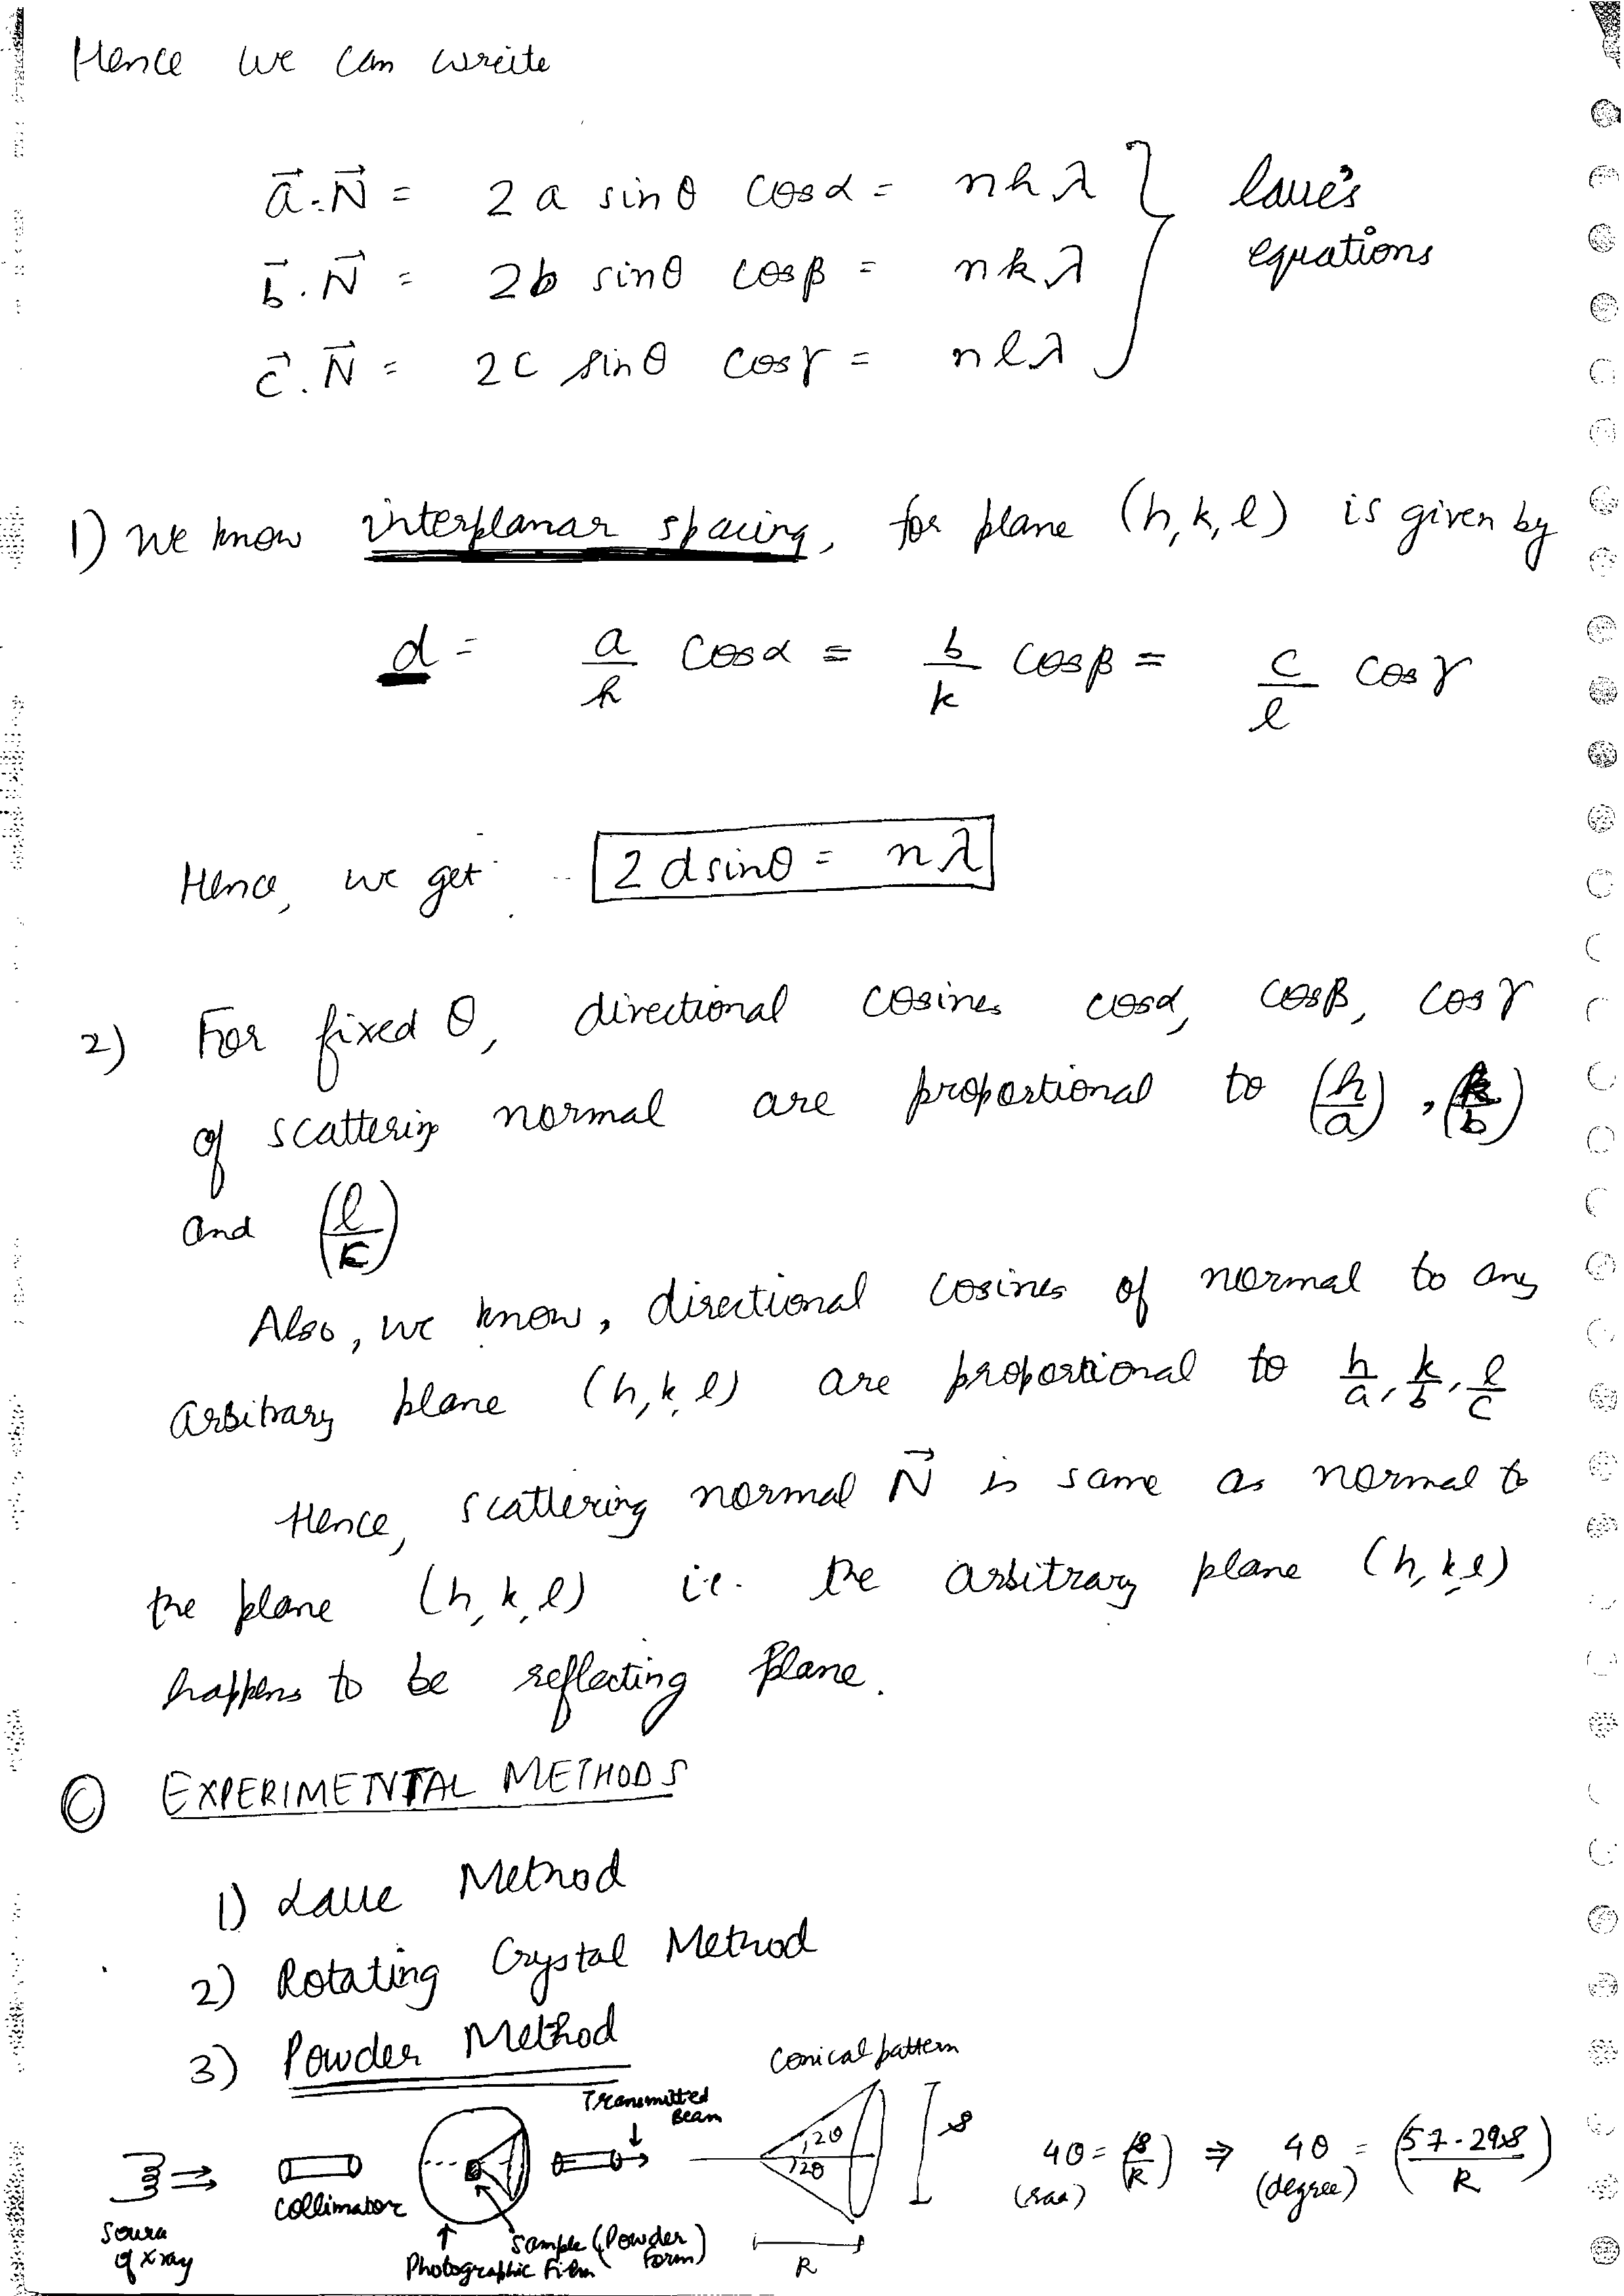 Hence we can write
a⃗.N⃗ = 2a sinθ cosα = nhλ
b⃗.N⃗ = 2b sinθ cosβ = nkλ
c⃗.N⃗ = 2c sinθ cosγ = nlλ
laue's
equations
1) We know interplanar spacing, for plane (h,k,l) is given by
d = a/h cosα = b/k cosβ = c/l cosγ
Hence, we get 2dsinθ = nλ
2) For fixed θ, directional cosines cosα, cosβ, cosγ
of scattering normal are proportional to (h/a), (k/b)
and (l/c)
Also, we know, directional cosines of normal to any
arbitrary plane (h,k,l) are proportional to h/a, k/b, l/c
Hence, scattering normal N⃗ is same as normal to
the plane (h,k,l) i.e. the arbitrary plane (h,k,l)
happens to be reflecting plane.
© EXPERIMENTAL METHODS
1) Laue Method
2) Rotating Crystal Method
3) Powder Method
Conical pattern
Transmitted
Beam
2θ
2θ
S
4θ = (S/R) ⇒ 4θ = (57.29S/R)
(rad) (degree)
Collimator
Source
of x ray
Sample (Powder
form)
Photographic Film
R